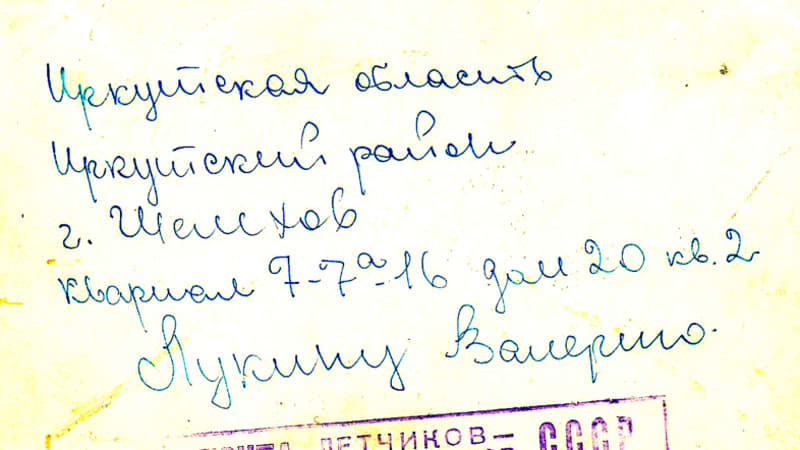 Иркутская область
Иркутский район
г. Шелихов
квартал 7-7а-16 дом 20 кв. 2
Лукину Валерию.
ЛЕТЧИКОВ —
СССР